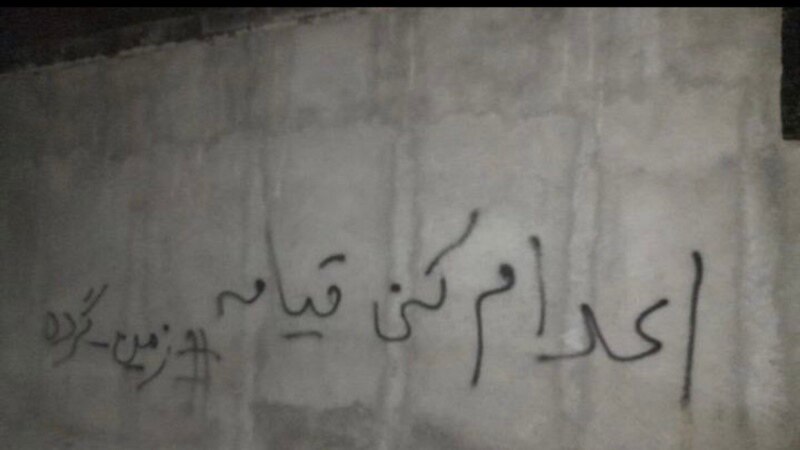 اعدام کنی قیامه
#و_زمین_گرده